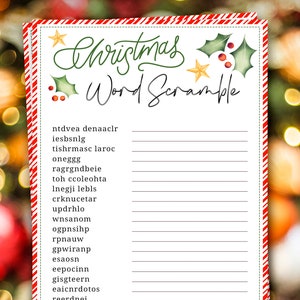 Christmas
Word Scramble
ntdvea denaaclr
iesbsnlg
tishrmasc laroc
oneggg
ragrgndbeie
toh ccoleohta
lnegji lebls
crknucetar
updrhlo
wnsanom
ogpnsihp
rpnauw
gpwiranp
esaosn
eepocinn
gisgteern
eaicnrdotos
reerdnei